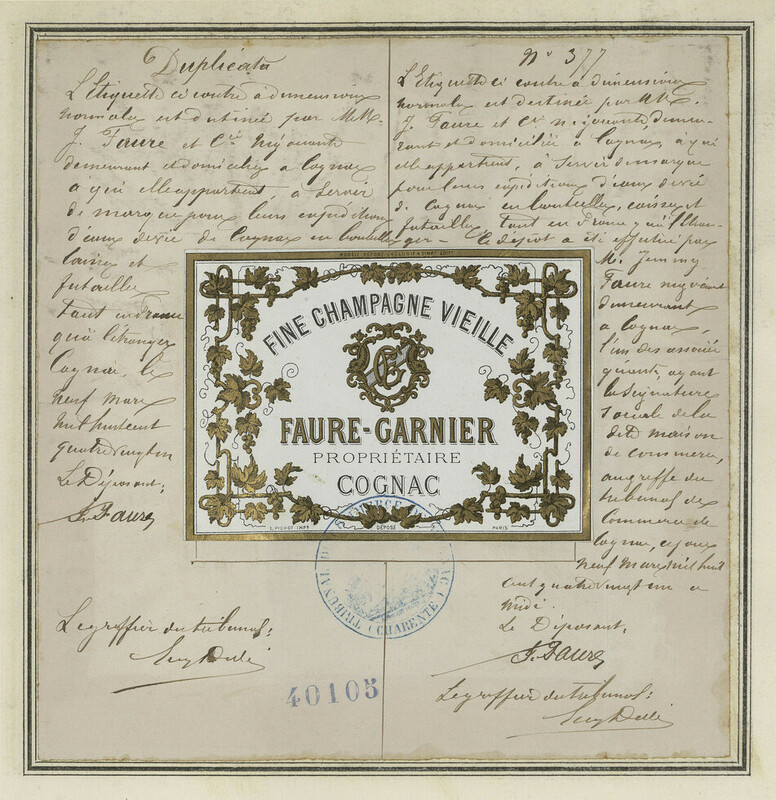 Duplicata
L'Etiquette ci contre à dimensions
normales est destinée par MM.
J. Faure et Cie Négociants
demeurant et domiciliés à Cognac
à qui elle appartient, à servir
de marque pour leurs expéditions
d'eaux de vie de Cognac en bouteilles
caisses et
futailles
tant en France
qu'à l'étranger
Cognac, le
neuf mars
mil huit cent
quatre vingt un
Le Déposant;
J. Faure
Le greffier du tribunal;
No 377
L'Etiquette ci contre à dimensions
normales est destinée par MM.
J. Faure et Cie négociants, demeu-
rant et domiciliés à Cognac à qui
elle appartient, à servir de marque
pour leurs expéditions d'eaux de vie
de Cognac en bouteilles, caisses et
futailles, tant en France qu'à l'étran-
ger - Le dépôt a été effectué par
M. Jemmy
Faure négociant
demeurant
à Cognac,
l'un des associés
gérants, ayant
la signature
sociale de la
dite maison
de commerce,
au greffe du
tribunal de
Commerce de
Cognac, ce jour
neuf mars mil huit
cent quatre vingt un à
midi.
Le Déposant,
J. Faure
Le greffier du tribunal:
FINE CHAMPAGNE VIEILLE
FAURE-GARNIER
PROPRIÉTAIRE
COGNAC
DÉPOSÉ
PARIS
TRIBUNAL DE COMMERCE
(CHARENTE)
40105